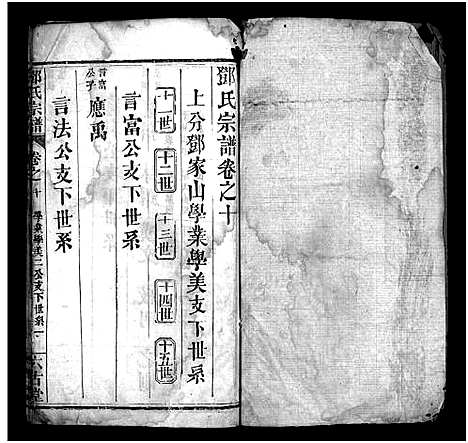 鄧氏宗譜卷之十
上分鄧家山學業學美支下世系
十一世 十二世 十三世 十四世 十五世
言富公支下世系
言富公子 應禹
言法公支下世系
鄧氏宗譜 卷之十 學業學美二公支下世系